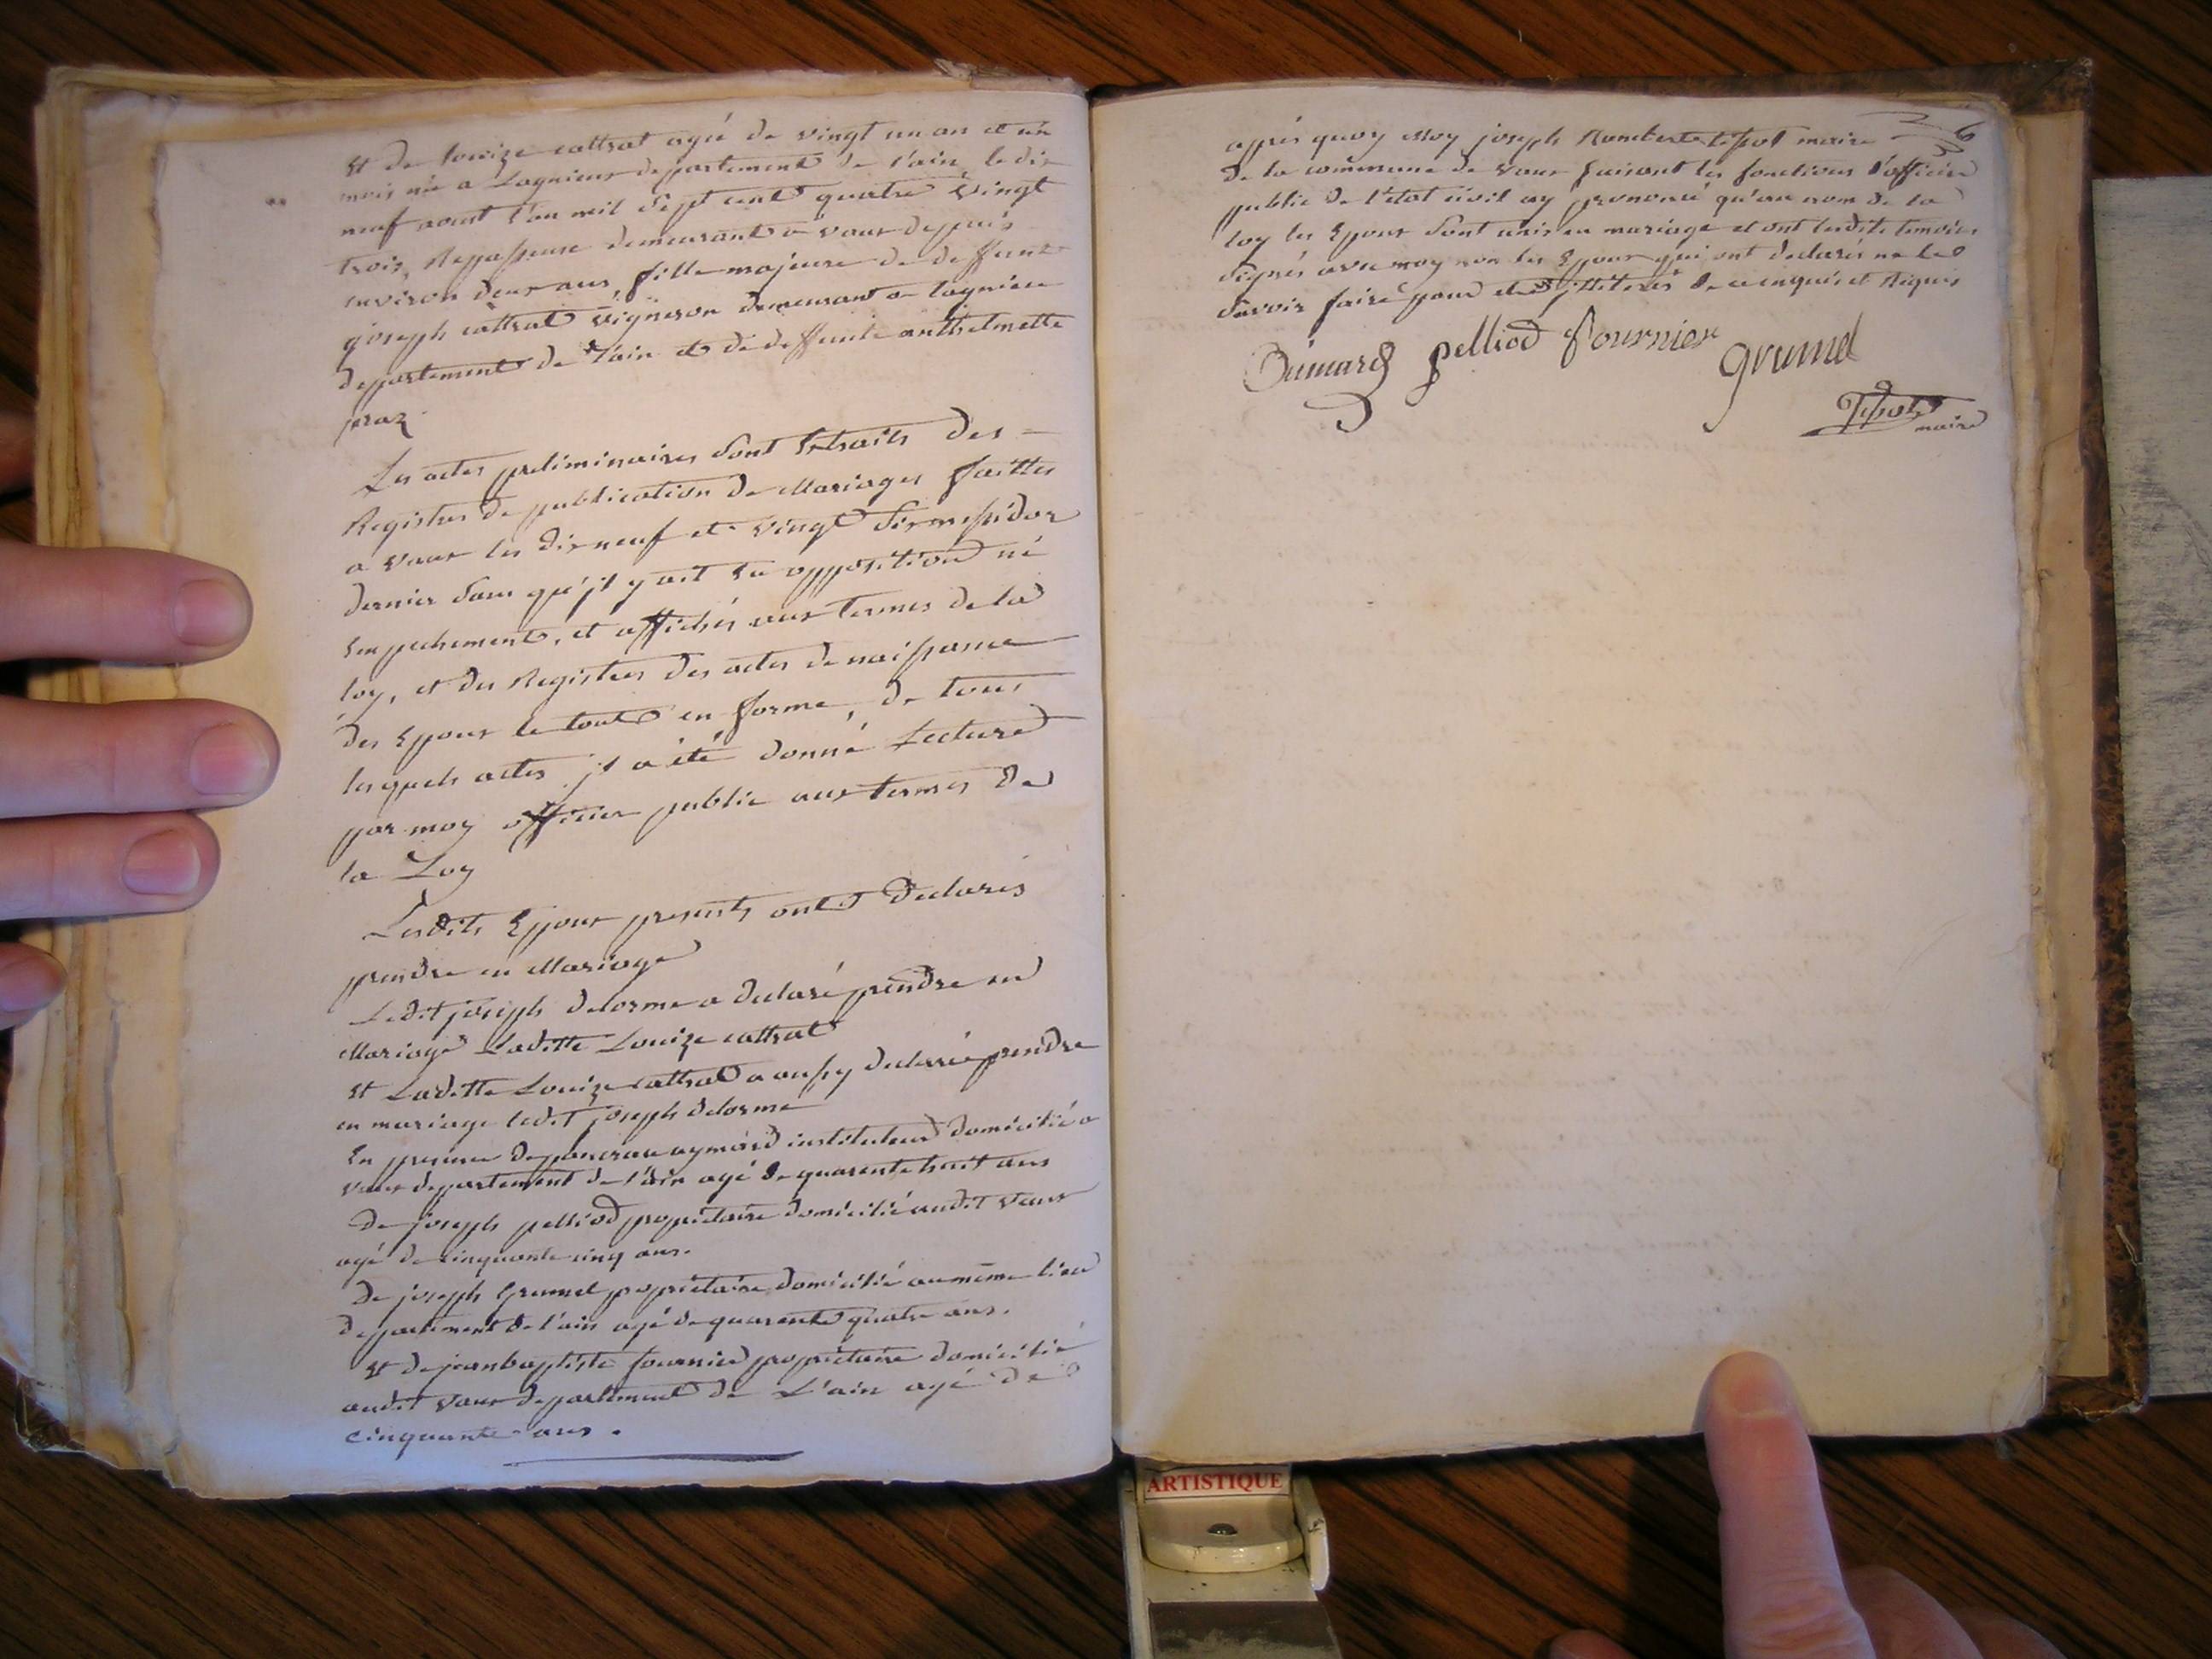 Et de Louize cattrat agée de vingt un an et un
mois née a Lagnieux departement de l'ain le dix
neuf aoust l'an mil sept cent quatre vingt
trois, Repasseuse demeurant a vaux depuis
environ deux ans, fille majeure de deffunt
joseph cattrat vigneron demeurant a lagnieu
departement de l'ain et de deffunte anthelmette
praz
Les actes preliminaires sont Extraits des
Registres de publication de Mariages faittes
a vaux les dix neuf et vingt six messidor
dernier sans qu'jl y ait Eu opposition né
Empechement, et affichés aux termes de la
loy, et des Registres des actes de naissance
des Epoux le tout en forme, de tous
lesquels actes jl a été donné Lecture
par moy officier public aux termes de
la Loy
Lesdits Epoux presents ont declarés
prendre en Mariage
Ledit joseph delorme a declaré prendre en
Mariage Laditte Louize cattrat
Et Laditte Louize cattrat a aussy declaré prendre
en mariage ledit joseph delorme
En presence de pancrace aymard instituteur domicilié a
vaux departement de l'ain agé de quarente huit ans
De joseph pelliod propriétaire domicilié audit vaux
agé de cinquante cinq ans.
De joseph Grumel propriétaire domicilié au même lieu
departement de l'ain agé de quarente quatre ans.
Et de jean baptiste fournier propriétaire domicilié
audit vaux departement de L'ain agé de
cinquante ans.
après quoy Moy joseph Rambert tissot maire
de la commune de vaux faisant les fonctions d'officier
public de l'état civil ay prononcé qu'au nom de la
loy les Epoux sont unis en mariage et ont lesdits temoins
signés avec moy non les Epoux qui ont declarés ne le
savoir faire pour de ce enquis et Requis
pelliod fournier
grumel
maire
ARTISTIQUE